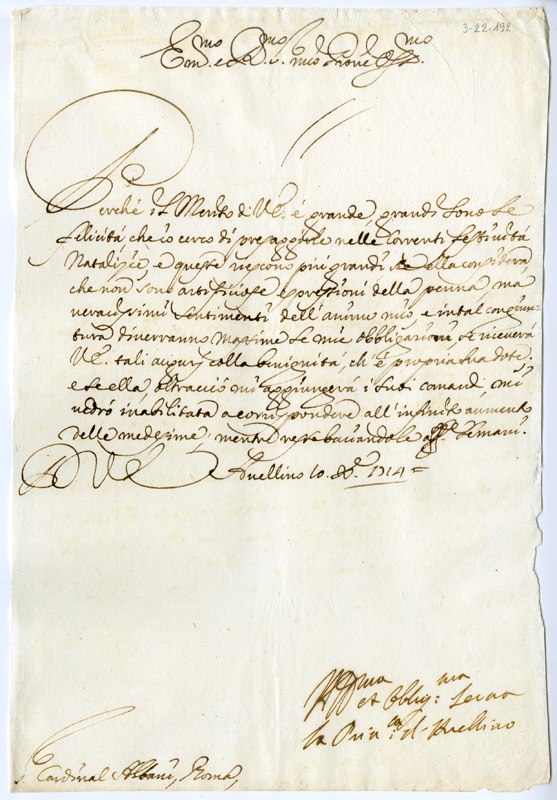 3-22-192
Em.mo e R.mo S.r mio P.rone Oss.mo
Perche il Merito di V.E. é grande, grandi sono le
felicitá, che io cerco di presaggirle nelle correnti festivitá
Natalizie, e queste riescono piú grandi se ella considera,
che non sono artifitiose espressioni della penna, ma
veracissimi sentimenti dell'animo mio, e in tal congiun-
tura diverranno Massime le mie obbligazioni, se riceverá
V.E. tali augurj colla benignitá, ch'é propria sua dote.
e se ella, oltracció mi aggiungerá i suoi comandi mi
vedró inabilitata a corrispondere all'infinito aumento
delle medesime; mentre resto baciandole aff.te le mani.
D V.E. Avellino 10. Xbre. 1714 =
Dev.ma et Obblig.ma Serva
la Prin.sa d'Avellino
S. Cardinal Albani, Roma,